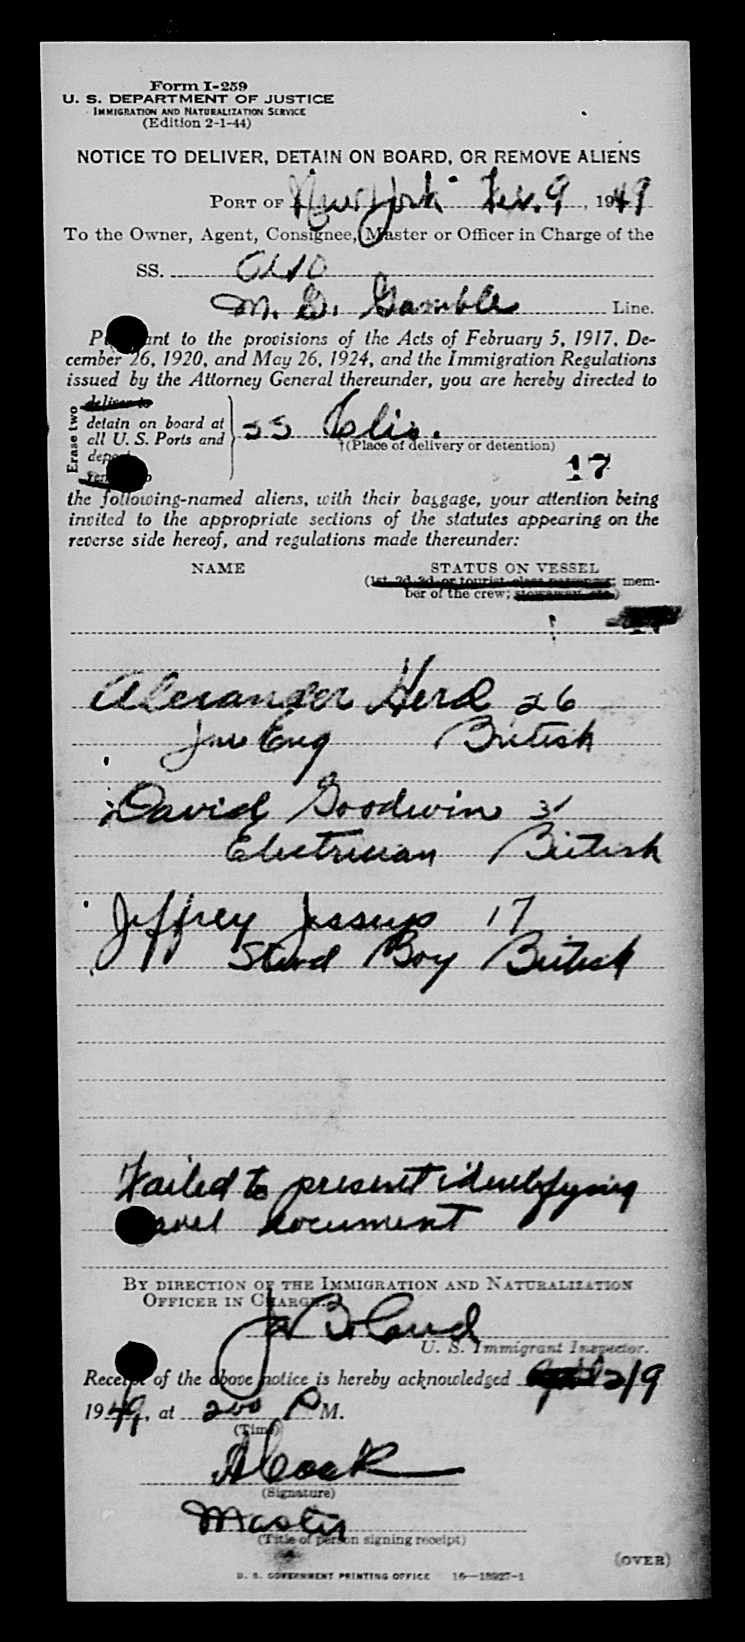 Form I-259
U. S. DEPARTMENT OF JUSTICE
IMMIGRATION AND NATURALIZATION SERVICE
(Edition 2-1-44)
NOTICE TO DELIVER, DETAIN ON BOARD, OR REMOVE ALIENS
PORT OF New York Feb. 9, 1949
To the Owner, Agent, Consignee, Master or Officer in Charge of the
SS.
M. G. Gamble Line.
Pursuant to the provisions of the Acts of February 5, 1917, De-
cember 26, 1920, and May 26, 1924, and the Immigration Regulations
issued by the Attorney General thereunder, you are hereby directed to
Erase two
deliver to
detain on board at
all U. S. Ports and
deport
SS
†(Place of delivery or detention)
17
the following-named aliens, with their baggage, your attention being
invited to the appropriate sections of the statutes appearing on the
reverse side hereof, and regulations made thereunder:
NAME STATUS ON VESSEL
(1st, 2d, 3d, or tourist-class passenger; mem-
ber of the crew; stowaway, etc.)
Alexander Herd 26
Jnr Eng British
David Goodwin 31
Electrician British
Jeffrey Jessup 17
Stwd Boy British
Failed to present identifying
travel document
BY DIRECTION OF THE IMMIGRATION AND NATURALIZATION
OFFICER IN CHARGE.
U. S. Immigrant Inspector.
Receipt of the above notice is hereby acknowledged 2/9
1949, at 2 00 P M.
(Time)
A Cook
(Signature)
Master
(Title of person signing receipt)
(OVER)
U. S. GOVERNMENT PRINTING OFFICE 16—18927-1